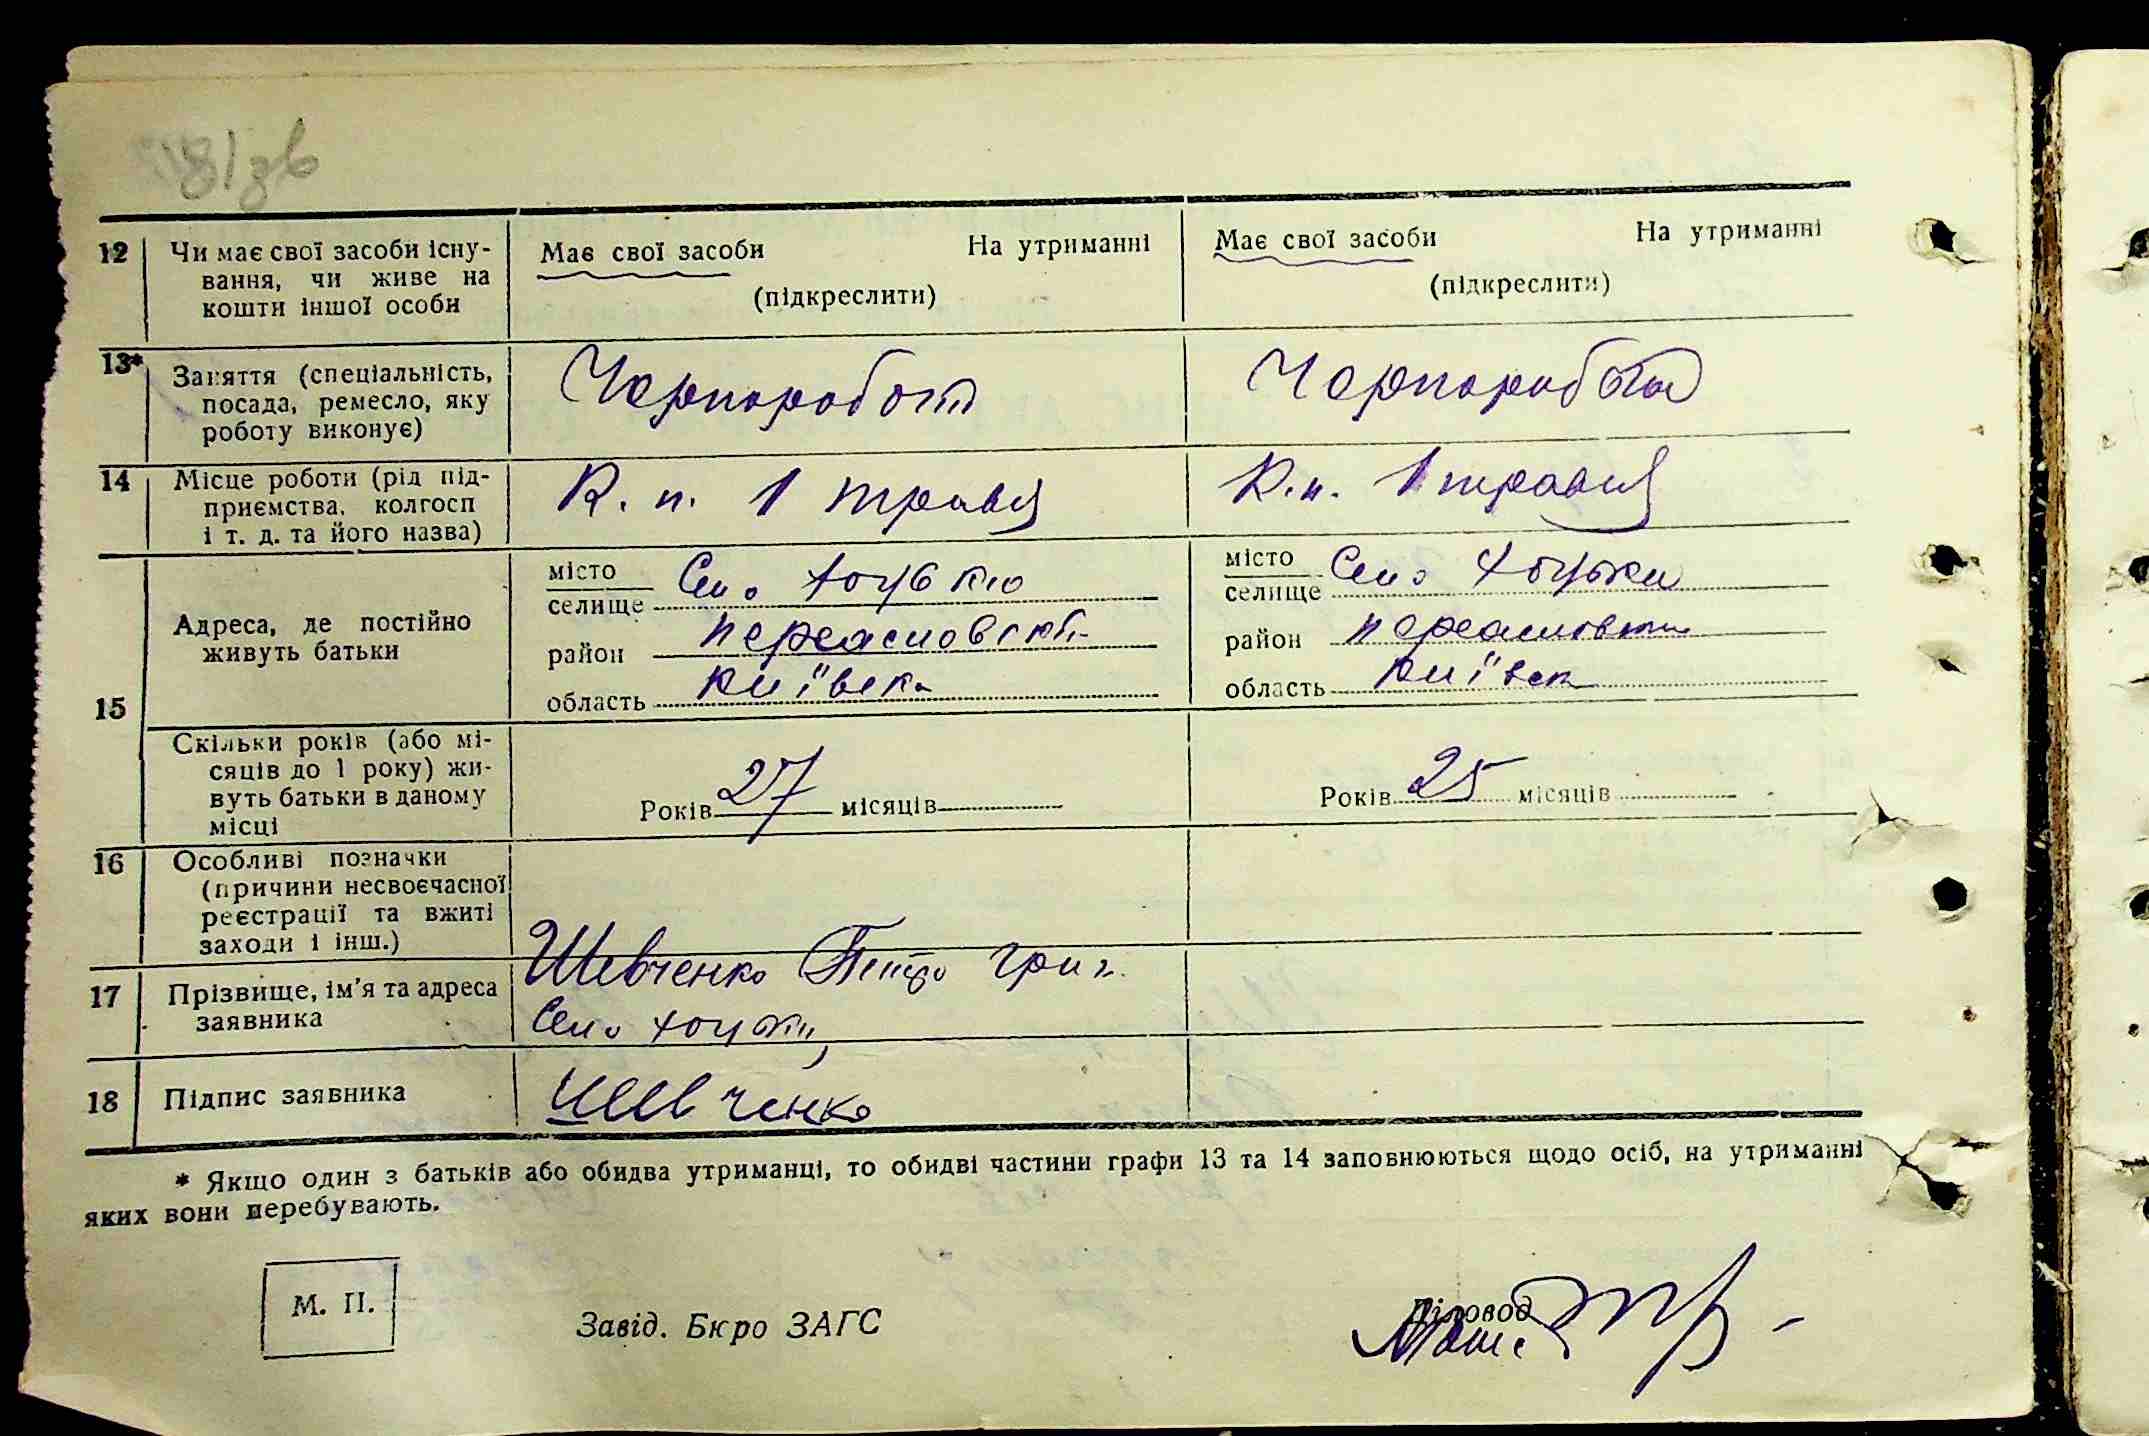 12 Чи має свої засоби існу-
вання, чи живе на
кошти іншої особи
Має свої засоби На утриманні
(підкреслити)
Має свої засоби На утриманні
(підкреслити)
13* Заняття (спеціальність,
посада, ремесло, яку
роботу виконує)
Чорнороботі
Чорноробоча
14 Місце роботи (рід під-
приємства, колгосп
і т. д. та його назва)
К. п. 1 травня
К. п. 1 травня
15 Адреса, де постійно
живуть батьки
місто
селище Село Хоцьки
район переасловськ
область київськ
місто
селище Село Хоцьки
район переасловськ
область київськ
Скільки років (або мі-
сяців до 1 року) жи-
вуть батьки в даному
місці
Років 27 місяців
Років 25 місяців
16 Особливі позначки
(причини несвоєчасної
реєстрації та вжиті
заходи і інш.)
17 Прізвище, ім'я та адреса
заявника
Шевченко Петро Григ.
Село Хоцьки,
18 Підпис заявника
Шевченко
* Якщо один з батьків або обидва утриманці, то обидві частини графи 13 та 14 заповнюються щодо осіб, на утриманні
яких вони перебувають.
М. П.
Завід. Бюро ЗАГС
Діловод